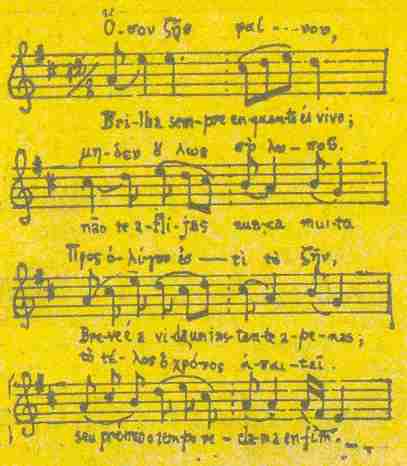 Ὅ-σον ζῇσ φαί---νου,
Bri-lha sem-pre en quan-to és vivo;
μη-δεν ὅ λωσ σὺ λυ-ποῦ.
não te a-fli-jas nun-ca mui-to
Προς ὀ-λίγον ἐσ—τὶ τὸ ζῆν,
Bre-ve é a vi-da, um ins-tan-te a-pe-nas;
τὸ τέ-λος ὁ χρόνος ἀ-παι-τεῖ.
seu prêmio o tempo re-cla-ma en-fim.